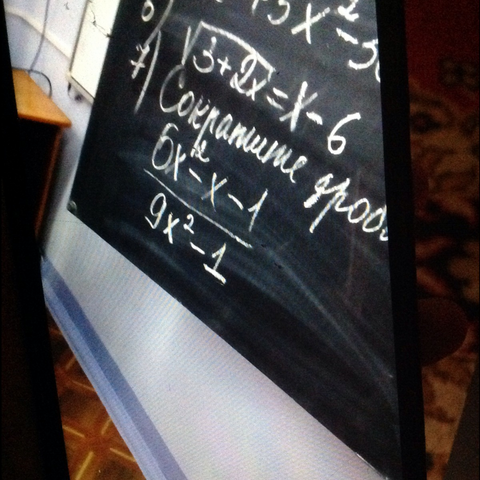 6)
+3x²-3
√3+2x = x-6
7) Сократите дробь
6x²-x-1
9x²-1